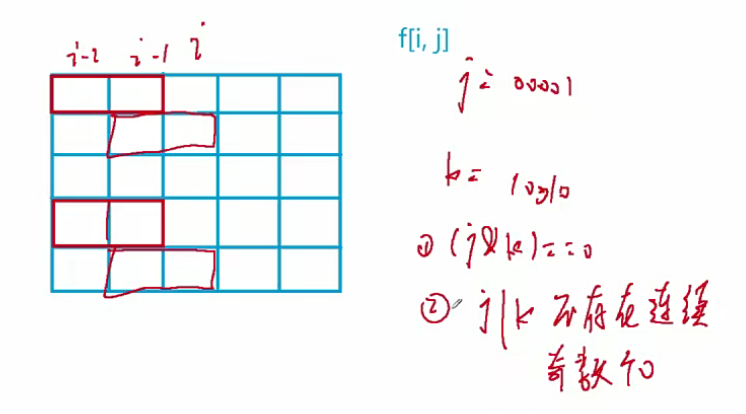 i-2 i-1 i
f[i, j]
j = 00001
k = 10010
① (j&k)==0
② j|k 不存在连续
奇数个0